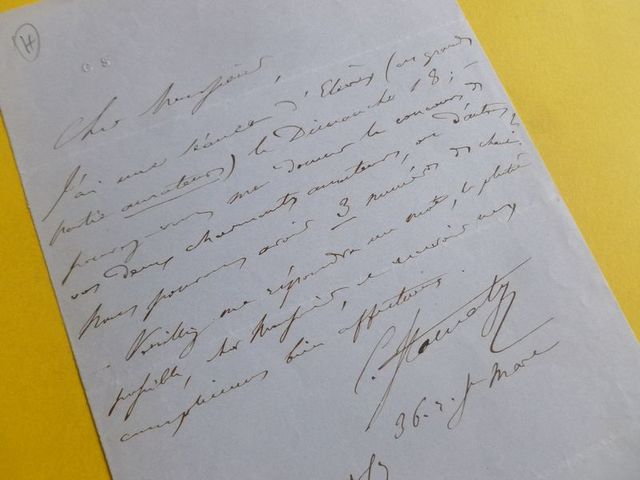 H
Cher Monsieur,
J'ai une séance d'Elèves (en grande
partie amateurs) le Dimanche 18; -
pouvez vous me donner le concours de
vos deux charmants amateurs, ou d'autres
Nous pourrions avoir 3 numéros de choix,
- Veuillez me répondre un mot, le plutôt
possible, cher Monsieur, et recevoir mes
complimens bien affectueux.
C. Stamaty
36. r. St Marc